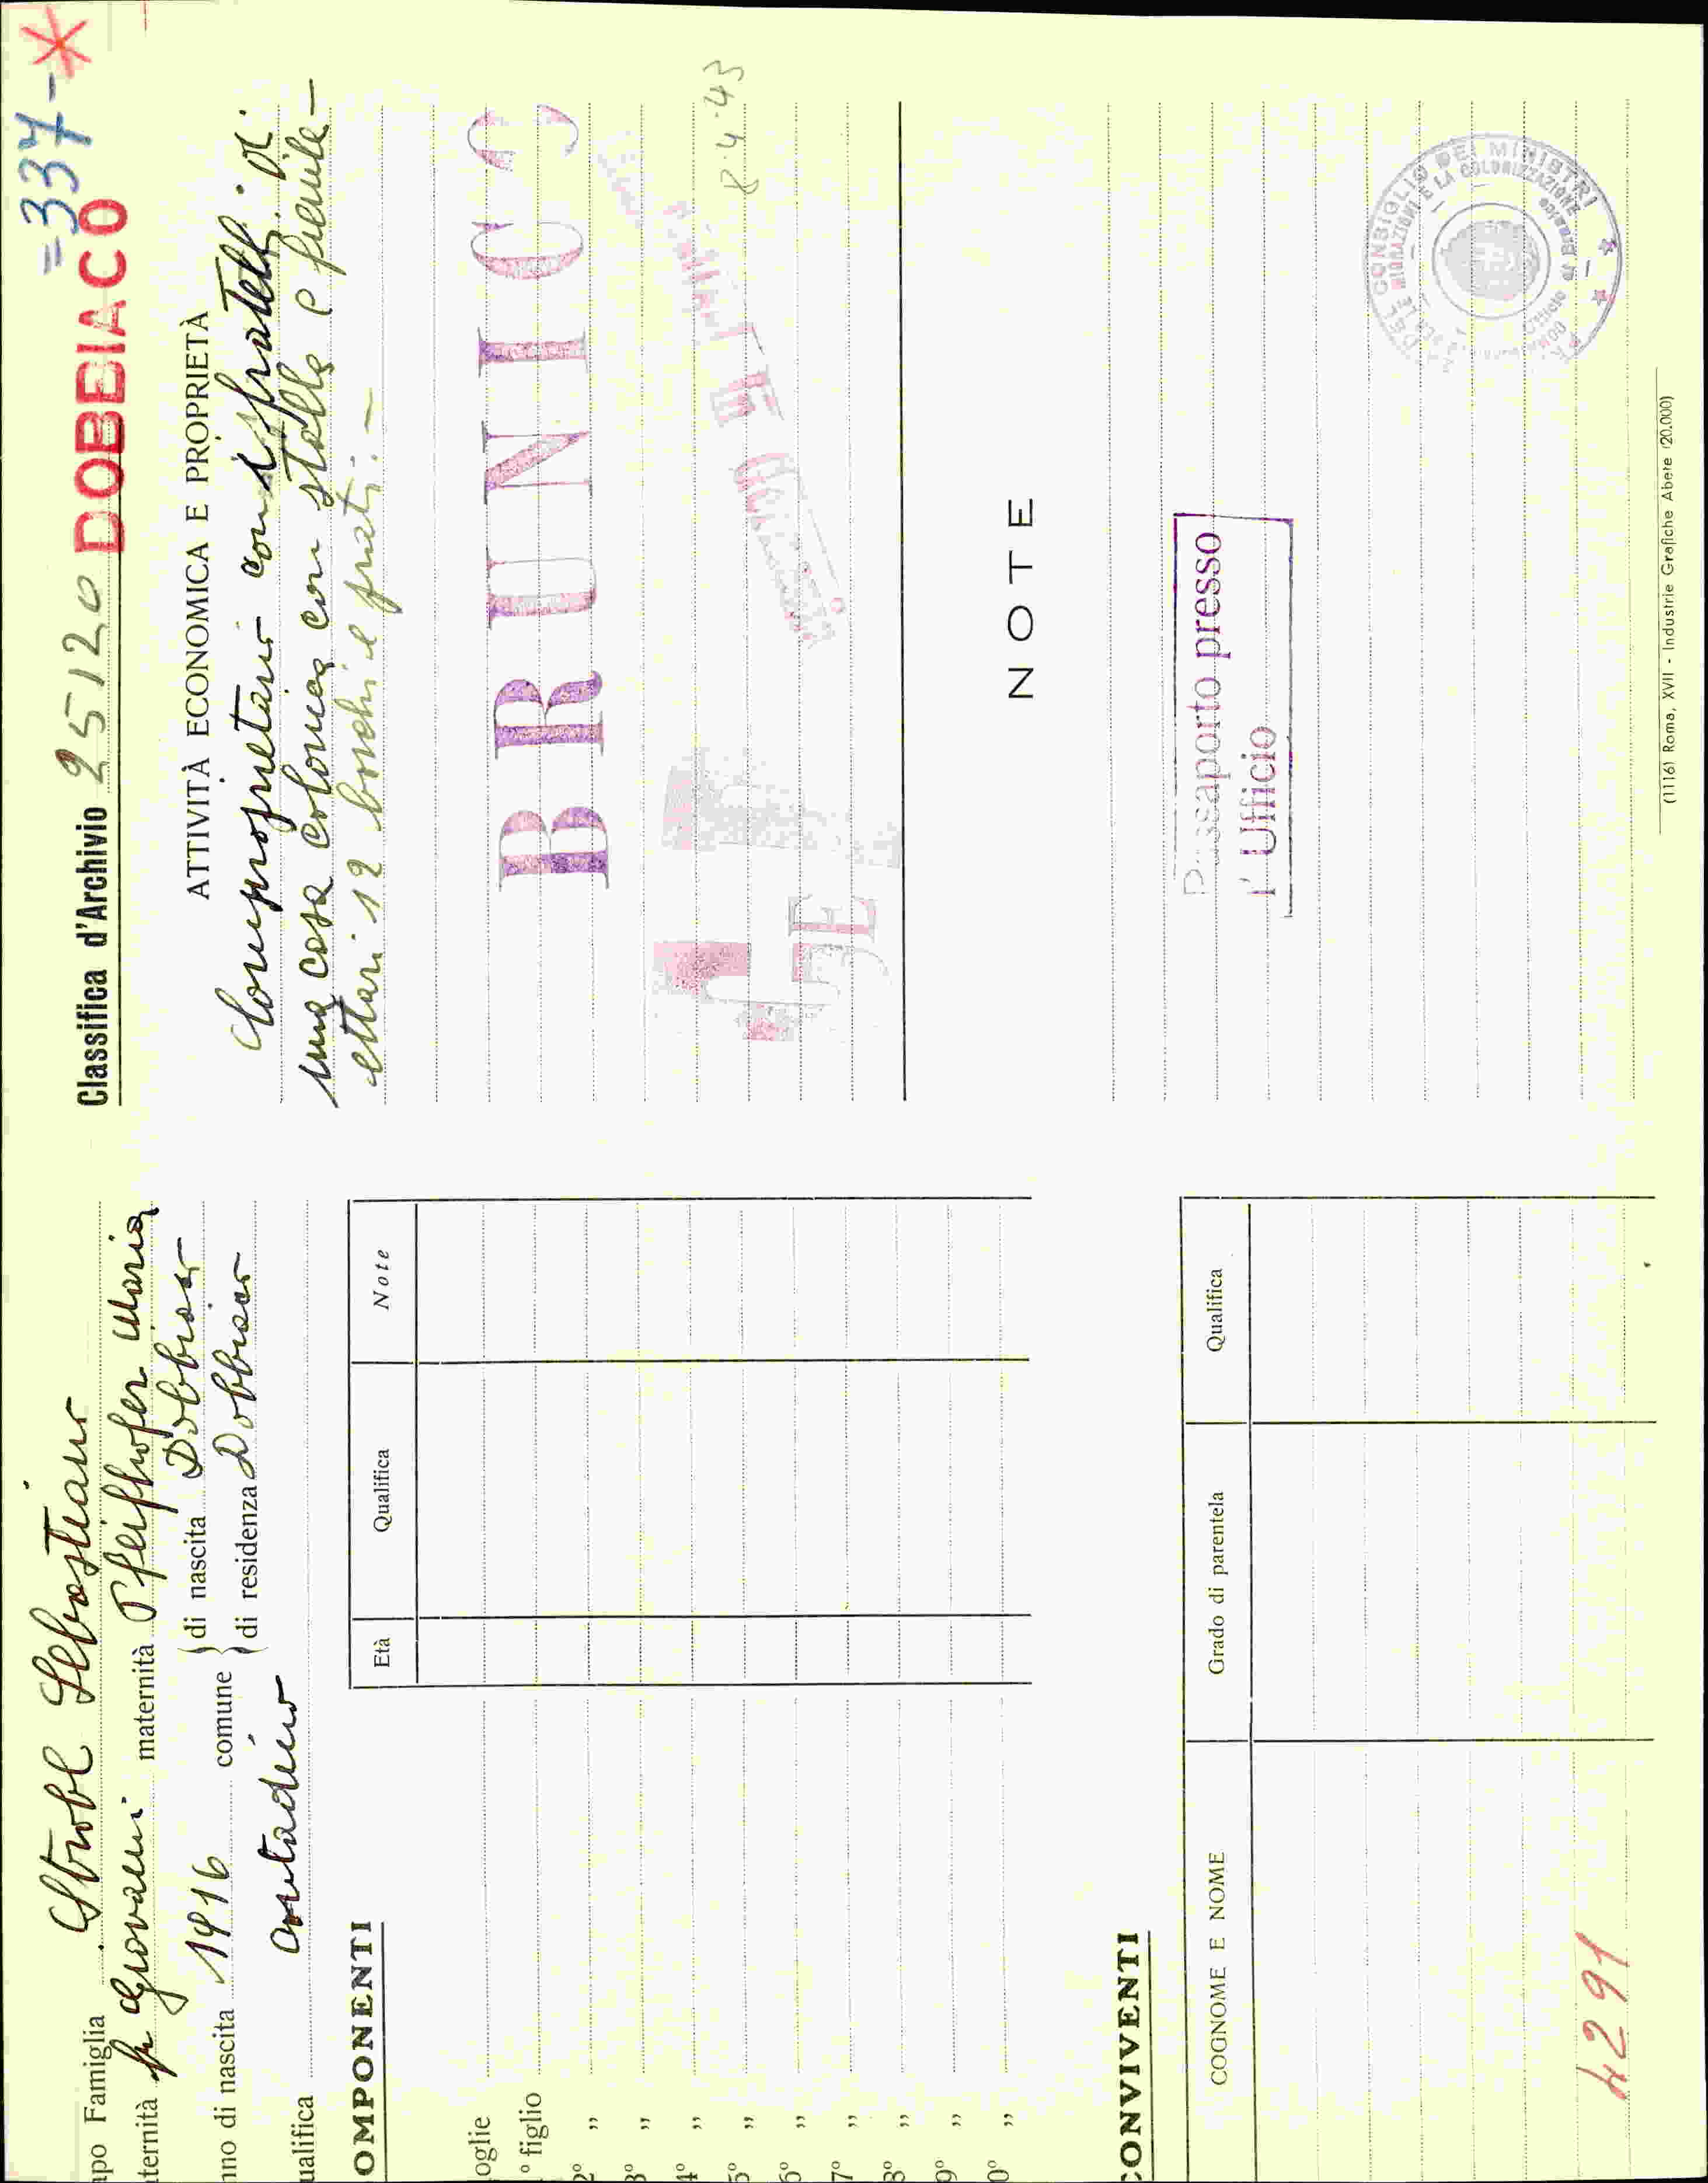 apo Famiglia Strobl Sebastiano
aternità fu Giovanni maternità Pfeifhofer Maria
nno di nascita 1916 comune di nascita Dobbiaco
di residenza Dobbiaco
ualifica Contadino
OMPONENTI
Età Qualifica Note
oglie
1° figlio
2° „
3° „
4° „
5° „
6° „
7° „
8° „
9° „
0° „
CONVIVENTI
COGNOME E NOME Grado di parentela Qualifica
4291
=337-*
Classifica d'Archivio 25120 DOBBIACO
ATTIVITÀ ECONOMICA E PROPRIETÀ
Comproprietario con i fratelli di
una casa colonica con stalla e fienile -
ettari 12 boschi e prati. -
BRUNICO
8-4-43
NOTE
Passaporto presso
l' Ufficio
DEL CONSIGLIO DEI MINISTRI
MIGRAZIONI E LA COLONIZZAZIONE
(11116) Roma, XVII - Industrie Grafiche Abete (20.000)